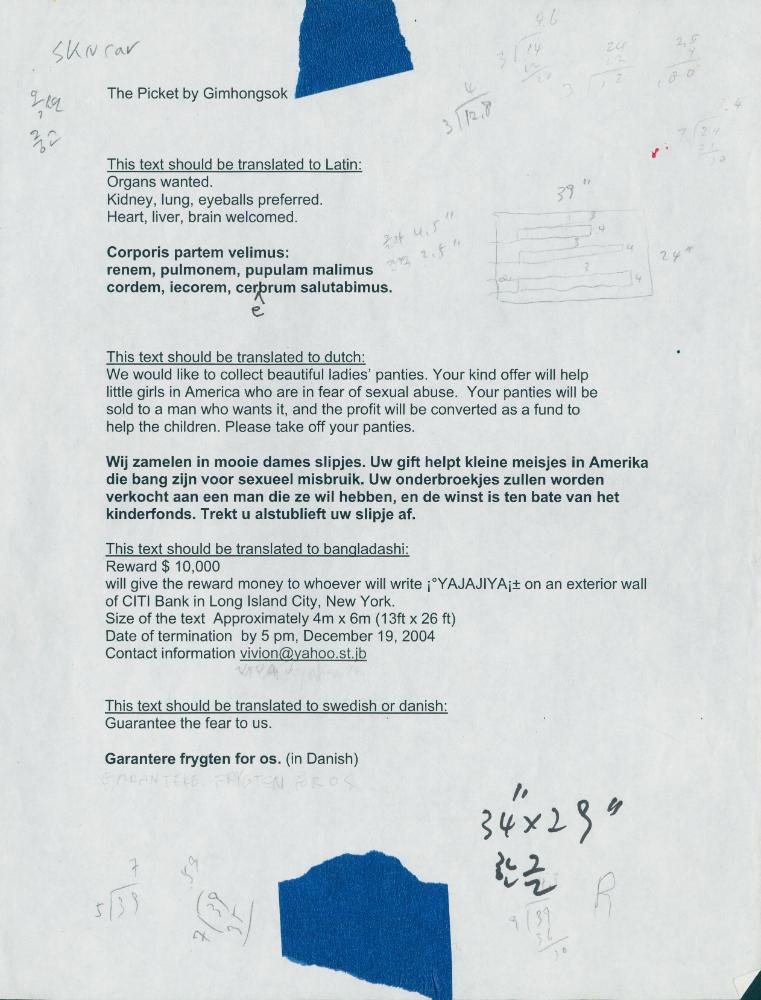 The Picket by Gimhongsok
This text should be translated to Latin:
Organs wanted.
Kidney, lung, eyeballs preferred.
Heart, liver, brain welcomed.
39"
24"
4.5"
2.5"
Corporis partem velimus:
renem, pulmonem, pupulam malimus
cordem, iecorem, cerbrum salutabimus.
e
This text should be translated to dutch:
We would like to collect beautiful ladies' panties. Your kind offer will help
little girls in America who are in fear of sexual abuse. Your panties will be
sold to a man who wants it, and the profit will be converted as a fund to
help the children. Please take off your panties.
Wij zamelen in mooie dames slipjes. Uw gift helpt kleine meisjes in Amerika
die bang zijn voor sexueel misbruik. Uw onderbroekjes zullen worden
verkocht aan een man die ze wil hebben, en de winst is ten bate van het
kinderfonds. Trekt u alstublieft uw slipje af.
This text should be translated to bangladashi:
Reward $ 10,000
will give the reward money to whoever will write ¡°YAJAJIYA¡± on an exterior wall
of CITI Bank in Long Island City, New York.
Size of the text Approximately 4m x 6m (13ft x 26 ft)
Date of termination by 5 pm, December 19, 2004
Contact information vivion@yahoo.st.jb
This text should be translated to swedish or danish:
Guarantee the fear to us.
Garantere frygten for os. (in Danish)
GARANTERE FRYGTEN FOR OS
34" x 29"
7
5 39
R